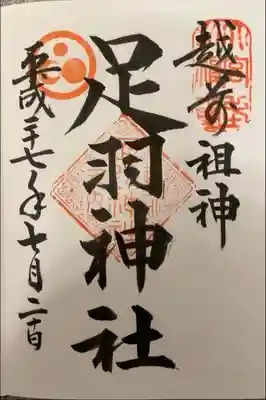 越前 祖神
足羽神社
平成二十七年七月二十日